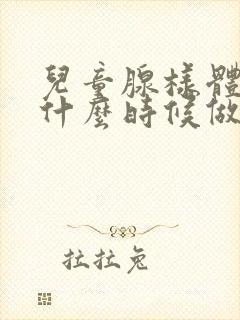 兒童腺樣體
什麼時候做
拉拉兔